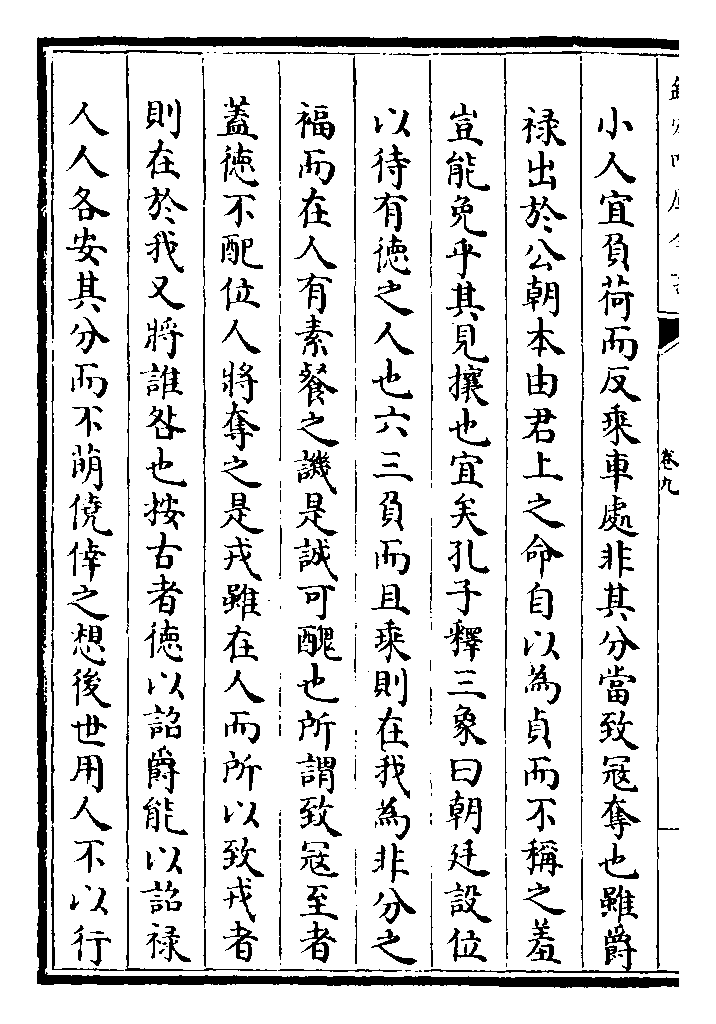 小人宜負荷而反乘車處非其分當致冦奪也雖爵
禄出於公朝本由君上之命自以為貞而不稱之羞
豈能免乎其見攘也宜矣孔子釋三象曰朝廷設位
以待有徳之人也六三負而且乘則在我為非分之
福而在人有素餐之譏是誠可醜也所謂致冦至者
蓋徳不配位人將奪之是戎雖在人而所以致戎者
則在於我又將誰咎也按古者徳以詔爵能以詔禄
人人各安其分而不萌僥倖之想後世用人不以行
卷九